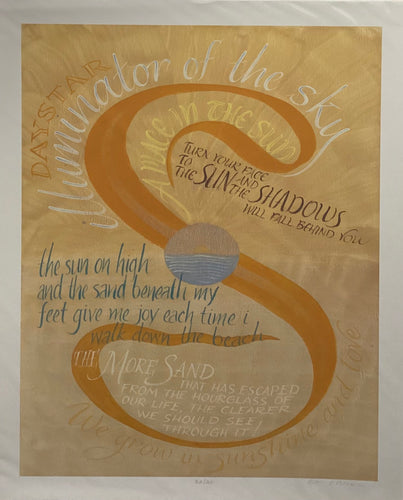 DAYSTAR
illuminator of the sky
A PLACE IN THE SUN
TURN YOUR FACE
TO THE SUN AND THE SHADOWS
WILL FALL BEHIND YOU
the sun on high
and the sand beneath my
feet give me joy each time i
walk down the beach
THE MORE SAND
THAT HAS ESCAPED
FROM THE HOURGLASS OF
OUR LIFE, THE CLEARER
WE SHOULD SEE
THROUGH IT!
We grow in sunshine and love